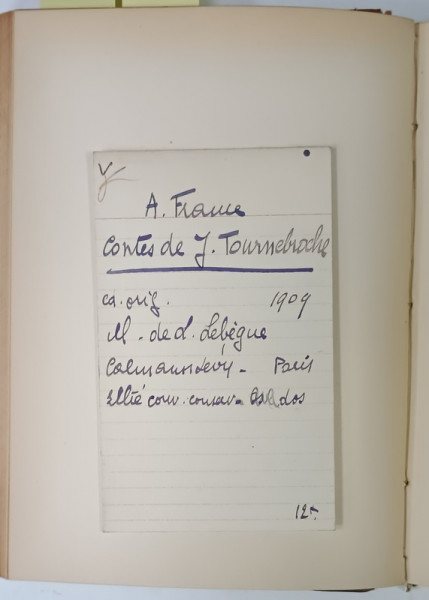 A. France
Contes de J. Tournebroche
ed. orig. 1909
Ill. de L. Lebègue
Calmann Lévy - Paris
couv. conserv. dos